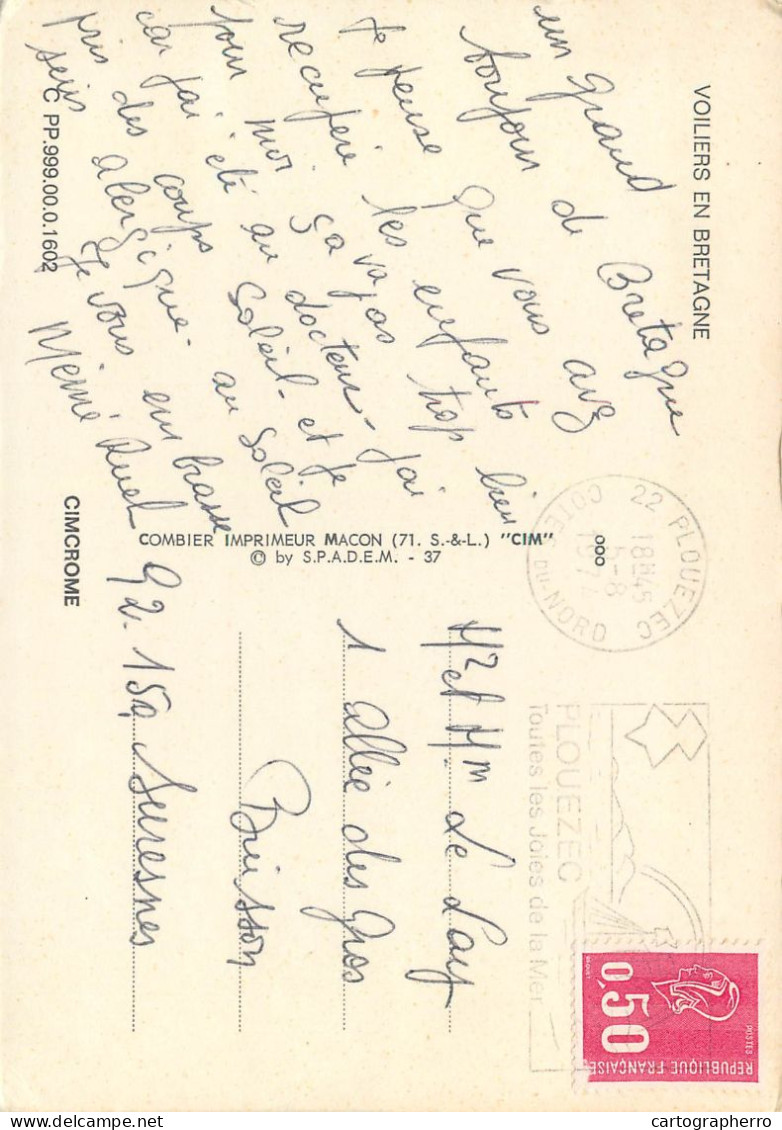 VOILIERS EN BRETAGNE
un grand
bonjour de Bretagne
Je pense que vous avez
recupéré les enfants
pour moi ça va pas trop bien
car j'ai été au docteur - j'ai
pris des coups au Soleil - et je
suis alergique - au Soleil
Je vous embrasse
Mémé
C PP.999.00.0.1602
CIMCROME
COMBIER IMPRIMEUR MACON (71. S.-&-L.) "CIM"
© by S.P.A.D.E.M. - 37
22 PLOUEZEC
18H45
5-8
1974
COTES-DU-NORD
PLOUEZEC
Toutes les Joies de la Mer
0,50
POSTES
REPUBLIQUE FRANÇAISE
Mr et Mm Le Lay
1 allée des Gros
Buisson
92.150 Suresnes
cartographerro